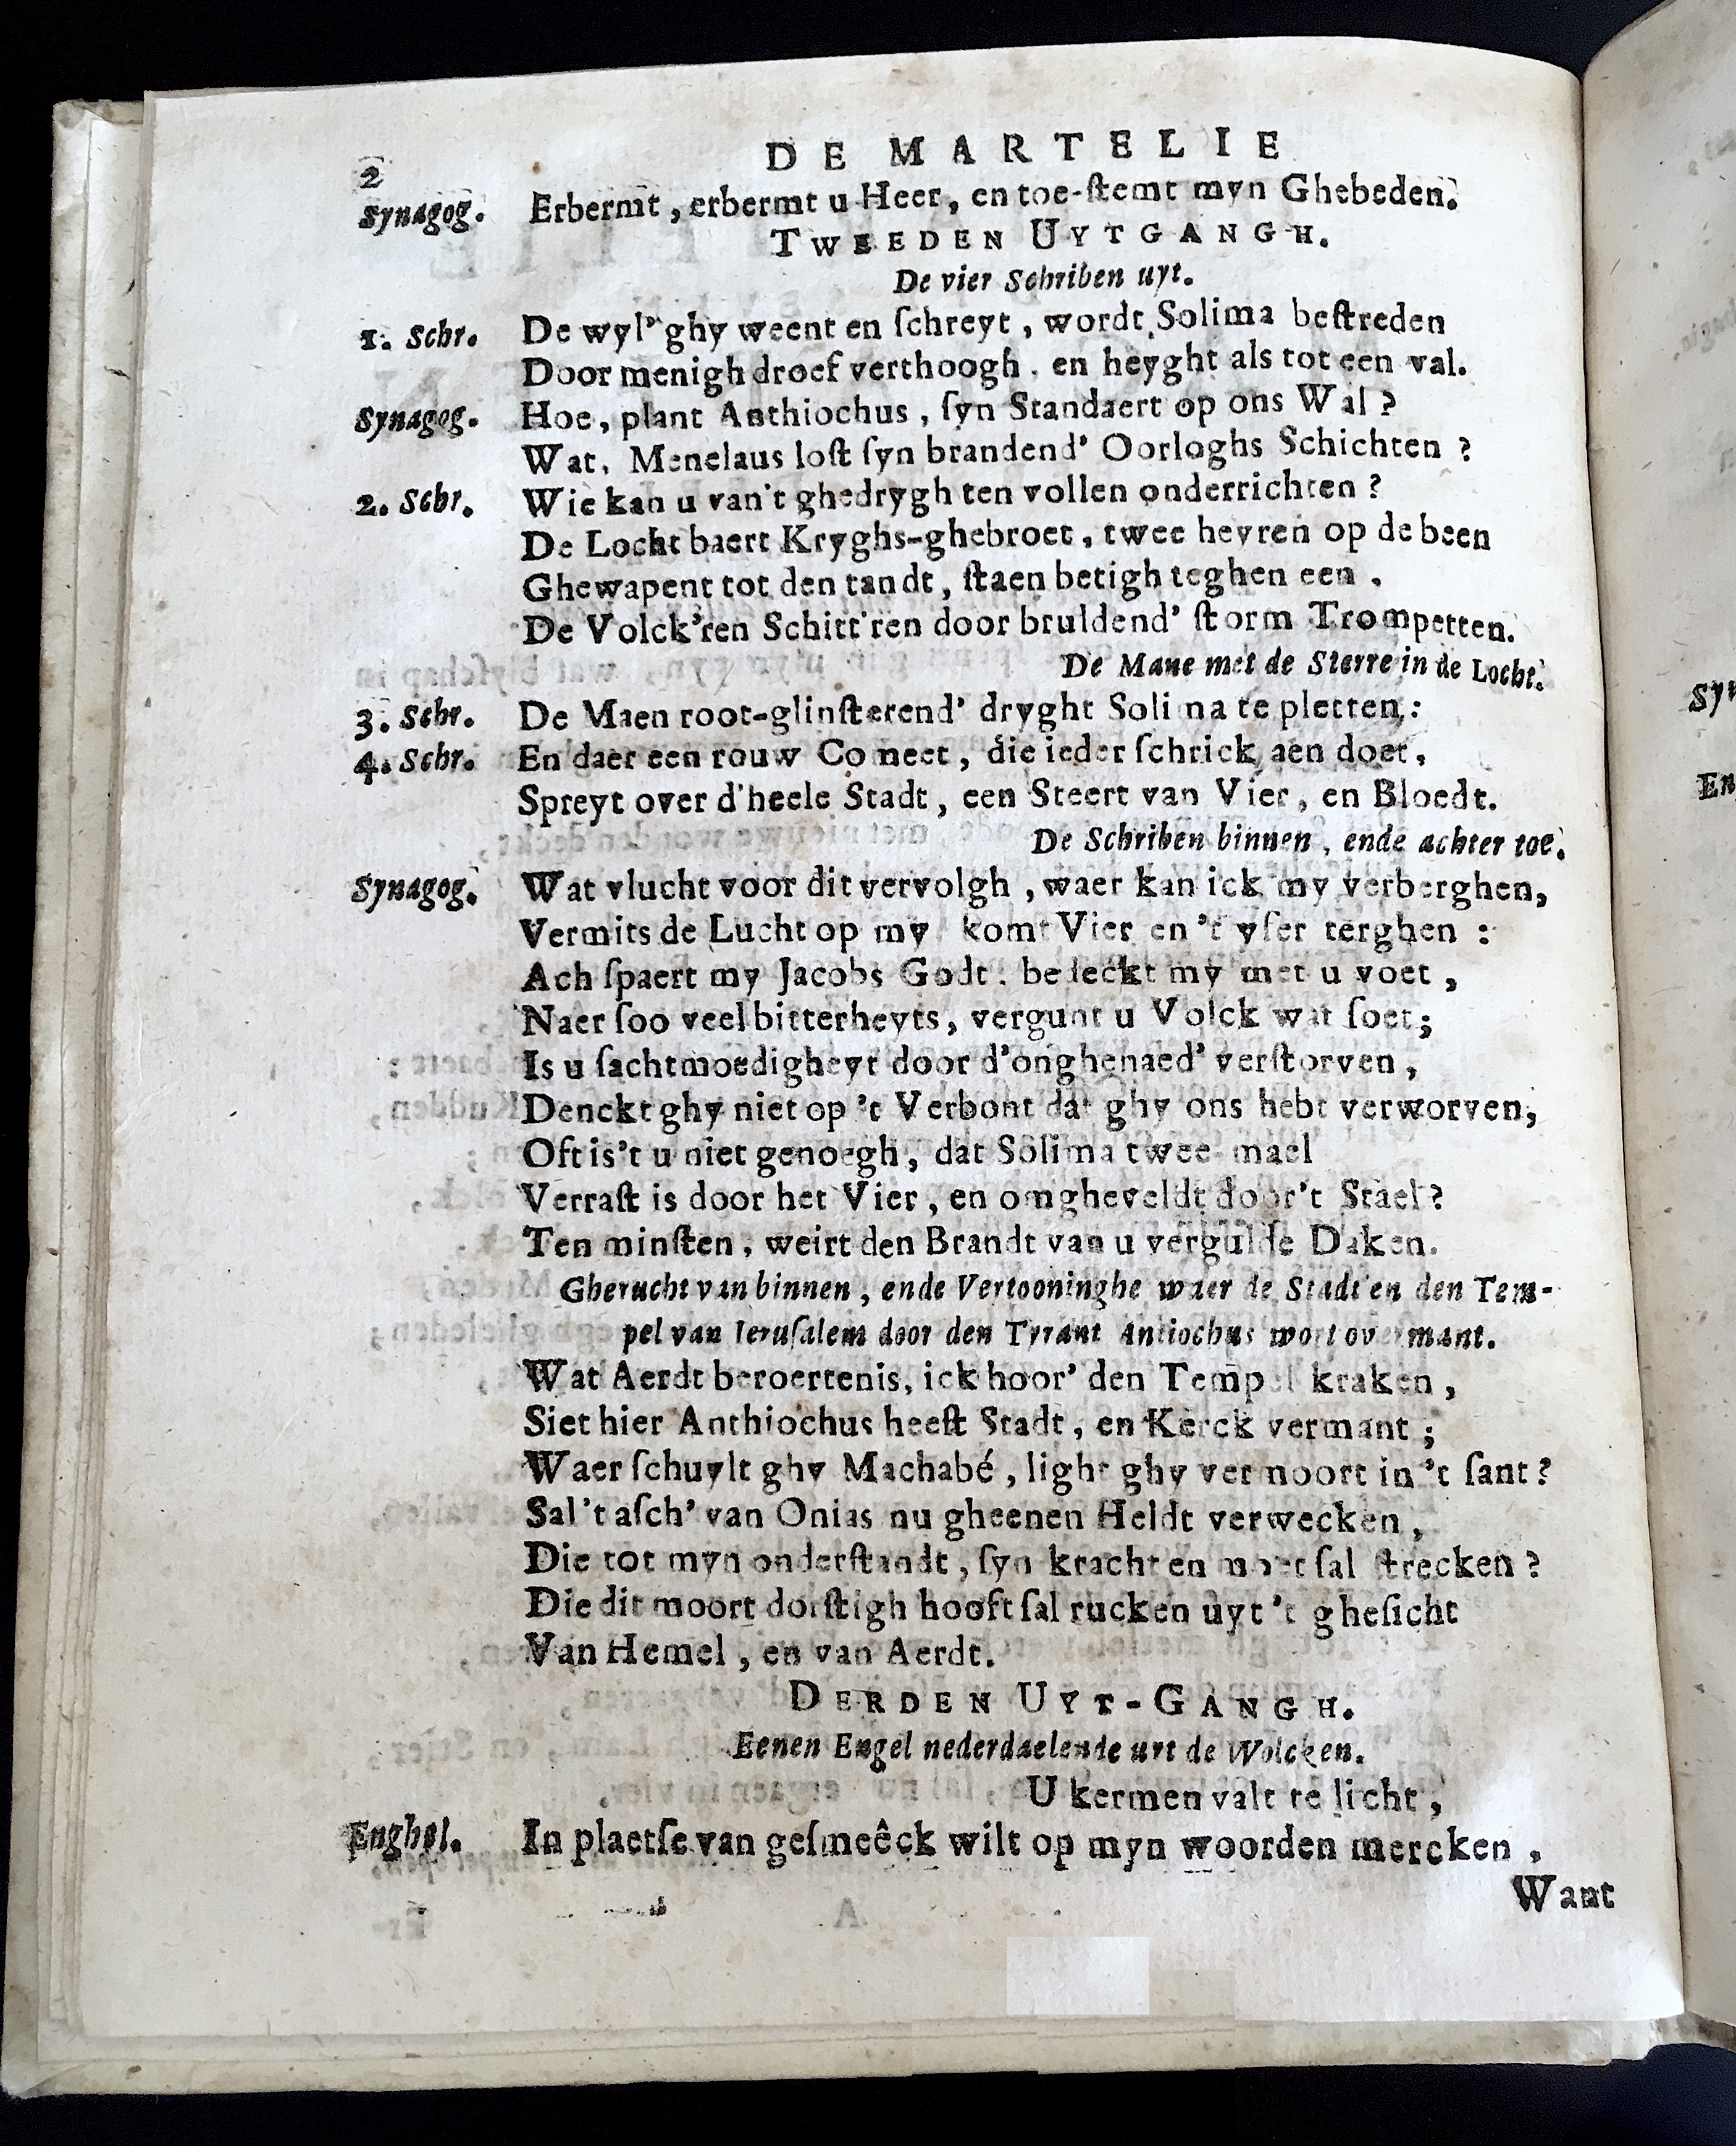 2
DE MARTELIE
Synagog. Erbermt, erbermt u Heer, en toe-ſtemt myn Ghebeden.
TWEEDEN UYTGANGH.
De vier Schriben uyt.
1. Schr. De wyl' ghy weent en ſchreyt, wordt Solima beſtreden
Door menigh droef verthoogh, en heyght als tot een val.
Synagog. Hoe, plant Anthiochus, ſyn Standaert op ons Wal?
Wat, Menelaus loſt ſyn brandend' Oorloghs Schichten?
2. Schr. Wie kan u van't ghedrygh ten vollen onderrichten?
De Locht baert Kryghs-ghebroet, twee heyren op de been
Ghewapent tot den tandt, ſtaen betigh teghen een.
De Volck'ren Schitt'ren door bruldend' ſtorm Trompetten.
De Mane met de Sterre in de Locht.
3. Schr. De Maen root-glinſterend' dryght Solima te pletten:
4. Schr. En daer een rouw Comeet, die ieder ſchrick aen doet,
Spreyt over d'heele Stadt, een Steert van Vier, en Bloedt.
De Schriben binnen, ende achter toe.
Synagog. Wat vlucht voor dit vervolgh, waer kan ick my verberghen,
Vermits de Lucht op my komt Vier en 't yſer terghen:
Ach ſpaert my Jacobs Godt. bedeckt my met u voet,
Naer ſoo veel bitterheyts, vergunt u Volck wat ſoet;
Is u ſachtmoedigheyt door d'onghenaed' verſtorven,
Denckt ghy niet op 't Verbont dat ghy ons hebt verworven,
Oft is't u niet genoegh, dat Solima twee mael
Verraſt is door het Vier, en omgheveldt door't Stael?
Ten minſten, weirt den Brandt van u vergulde Daken.
Gherucht van binnen, ende Vertooninghe waer de Stadt en den Tem-
pel van Ieruſalem door den Tyrant Antiochus wort overmant.
Wat Aerdt beroertenis, ick hoor' den Tempel kraken,
Siet hier Anthiochus heeft Stadt, en Kerck vermant;
Waer ſchuylt ghy Machabé, light ghy vermoort in 't ſant?
Sal 't aſch' van Onias nu gheenen Heldt verwecken,
Die tot myn onderſtandt, ſyn kracht en moet ſal ſtrecken?
Die dit moort dorſtigh hooft ſal rucken uyt 't gheſicht
Van Hemel, en van Aerdt.
DERDEN UYT-GANGH.
Eenen Engel nederdaelende uyt de Wolcken.
U kermen valt te licht,
Enghel. In plaetſe van geſmeêck wilt op myn woorden mercken,
Want